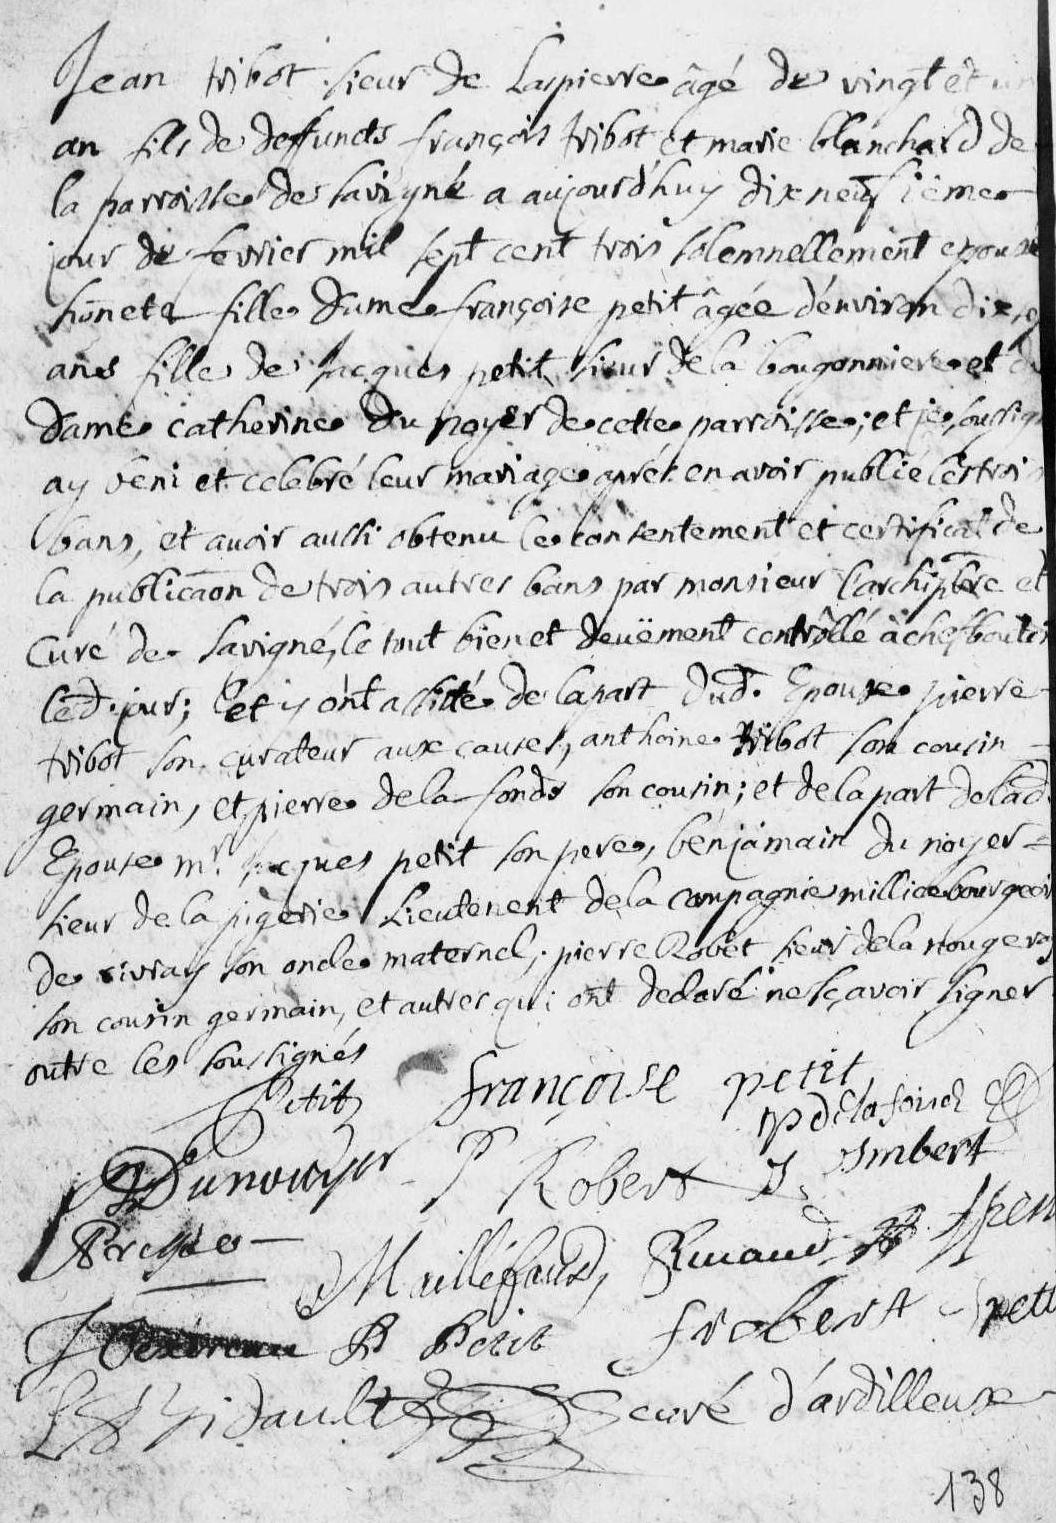 Jean tribot sieur de Lapierre âgé de vingt et un
an fils de deffuncts françois tribot et marie blanchard de
la parroisse de savigné a aujourd'huy dixneufieme
jour de fevrier mil sept cent trois solemnellement epousé
honeta fille dame françoise petit âgée d'environ dix
ans fille de jacques petit sieur de la bougonniere et de
dame catherine du noyer de cette parroisse; et je soussigné
ay beni et celebré leur mariage aprés en avoir publié les trois
bans, et avoir aussi obtenu le consentement et certificat de
la publicaon de trois autres bans par monsieur l'archiptre et
Curé de savigné, le tout bien et deuëment contrôllé à chefboutonne
led. jour; et y ont assisté de la part dud. Epouse pierre
tribot son curateur aux causes, anthoine tribot son cousin
germain, et pierre de la fonds son cousin; et de la part de lad.
Epouse mr. jacques petit son pere, benjamain du noyer =
sieur de la pigerie Lieutenent de la compagnie millice bourgeois
de civray son oncle maternel; pierre Robet sieur de la nougeray
son cousin germain, et autres qui ont declaré ne sçavoir signer
outre les soussignés
Petit françoise petit
p de la fond
Dunouyer P Robert J Imbert
Mailléfaud,
B Petit f robert petit
Gidault curé d'ardilleux
138